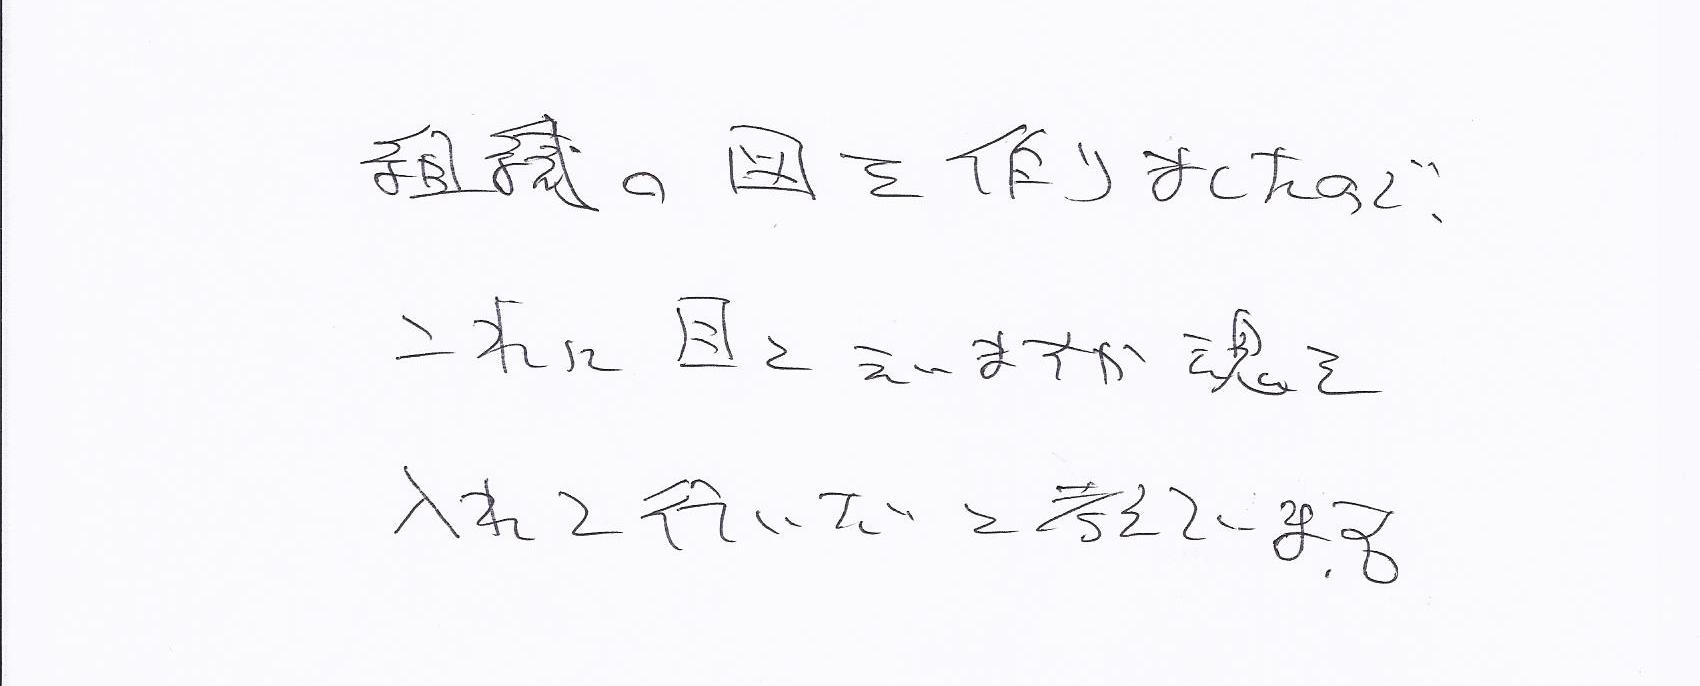 組織の図を作りましたので、
これに目と言いますか魂を
入れて行いたいと考えています。